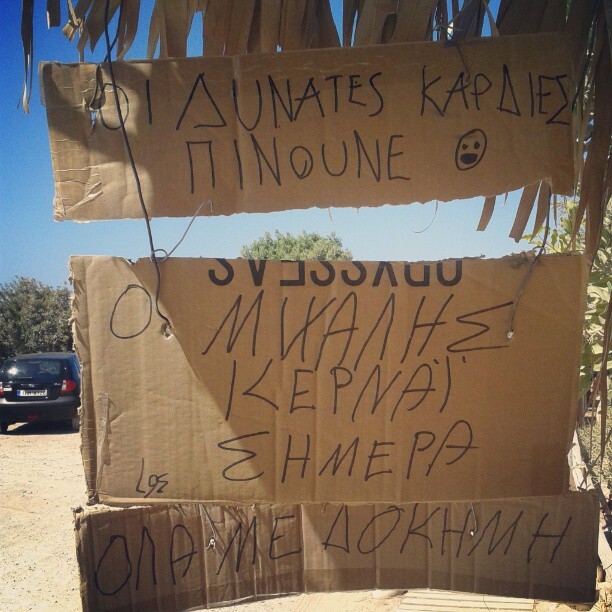 ΟΙ ΔΥΝΑΤΕΣ ΚΑΡΔΙΕΣ
ΠΙΝΟΥΝΕ
ODYSSEAS
Ο ΜΙΧΑΛΗΣ
ΚΕΡΝΑΪ
ΣΗΜΕΡΑ
ΟΛΑ ΜΕ ΔΟΚΗΜΗ